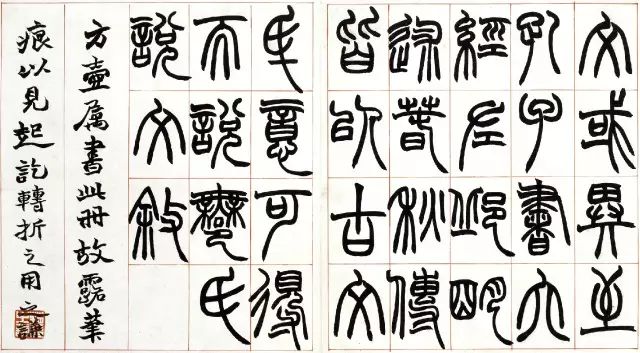 文或異至
孔子書六
經左邱明
述春秋傳
皆㠯古文
氒意可得
而說鄦氏
說文敘
方壺屬書此冊故露筆
痕以見起訖轉折之用之謙